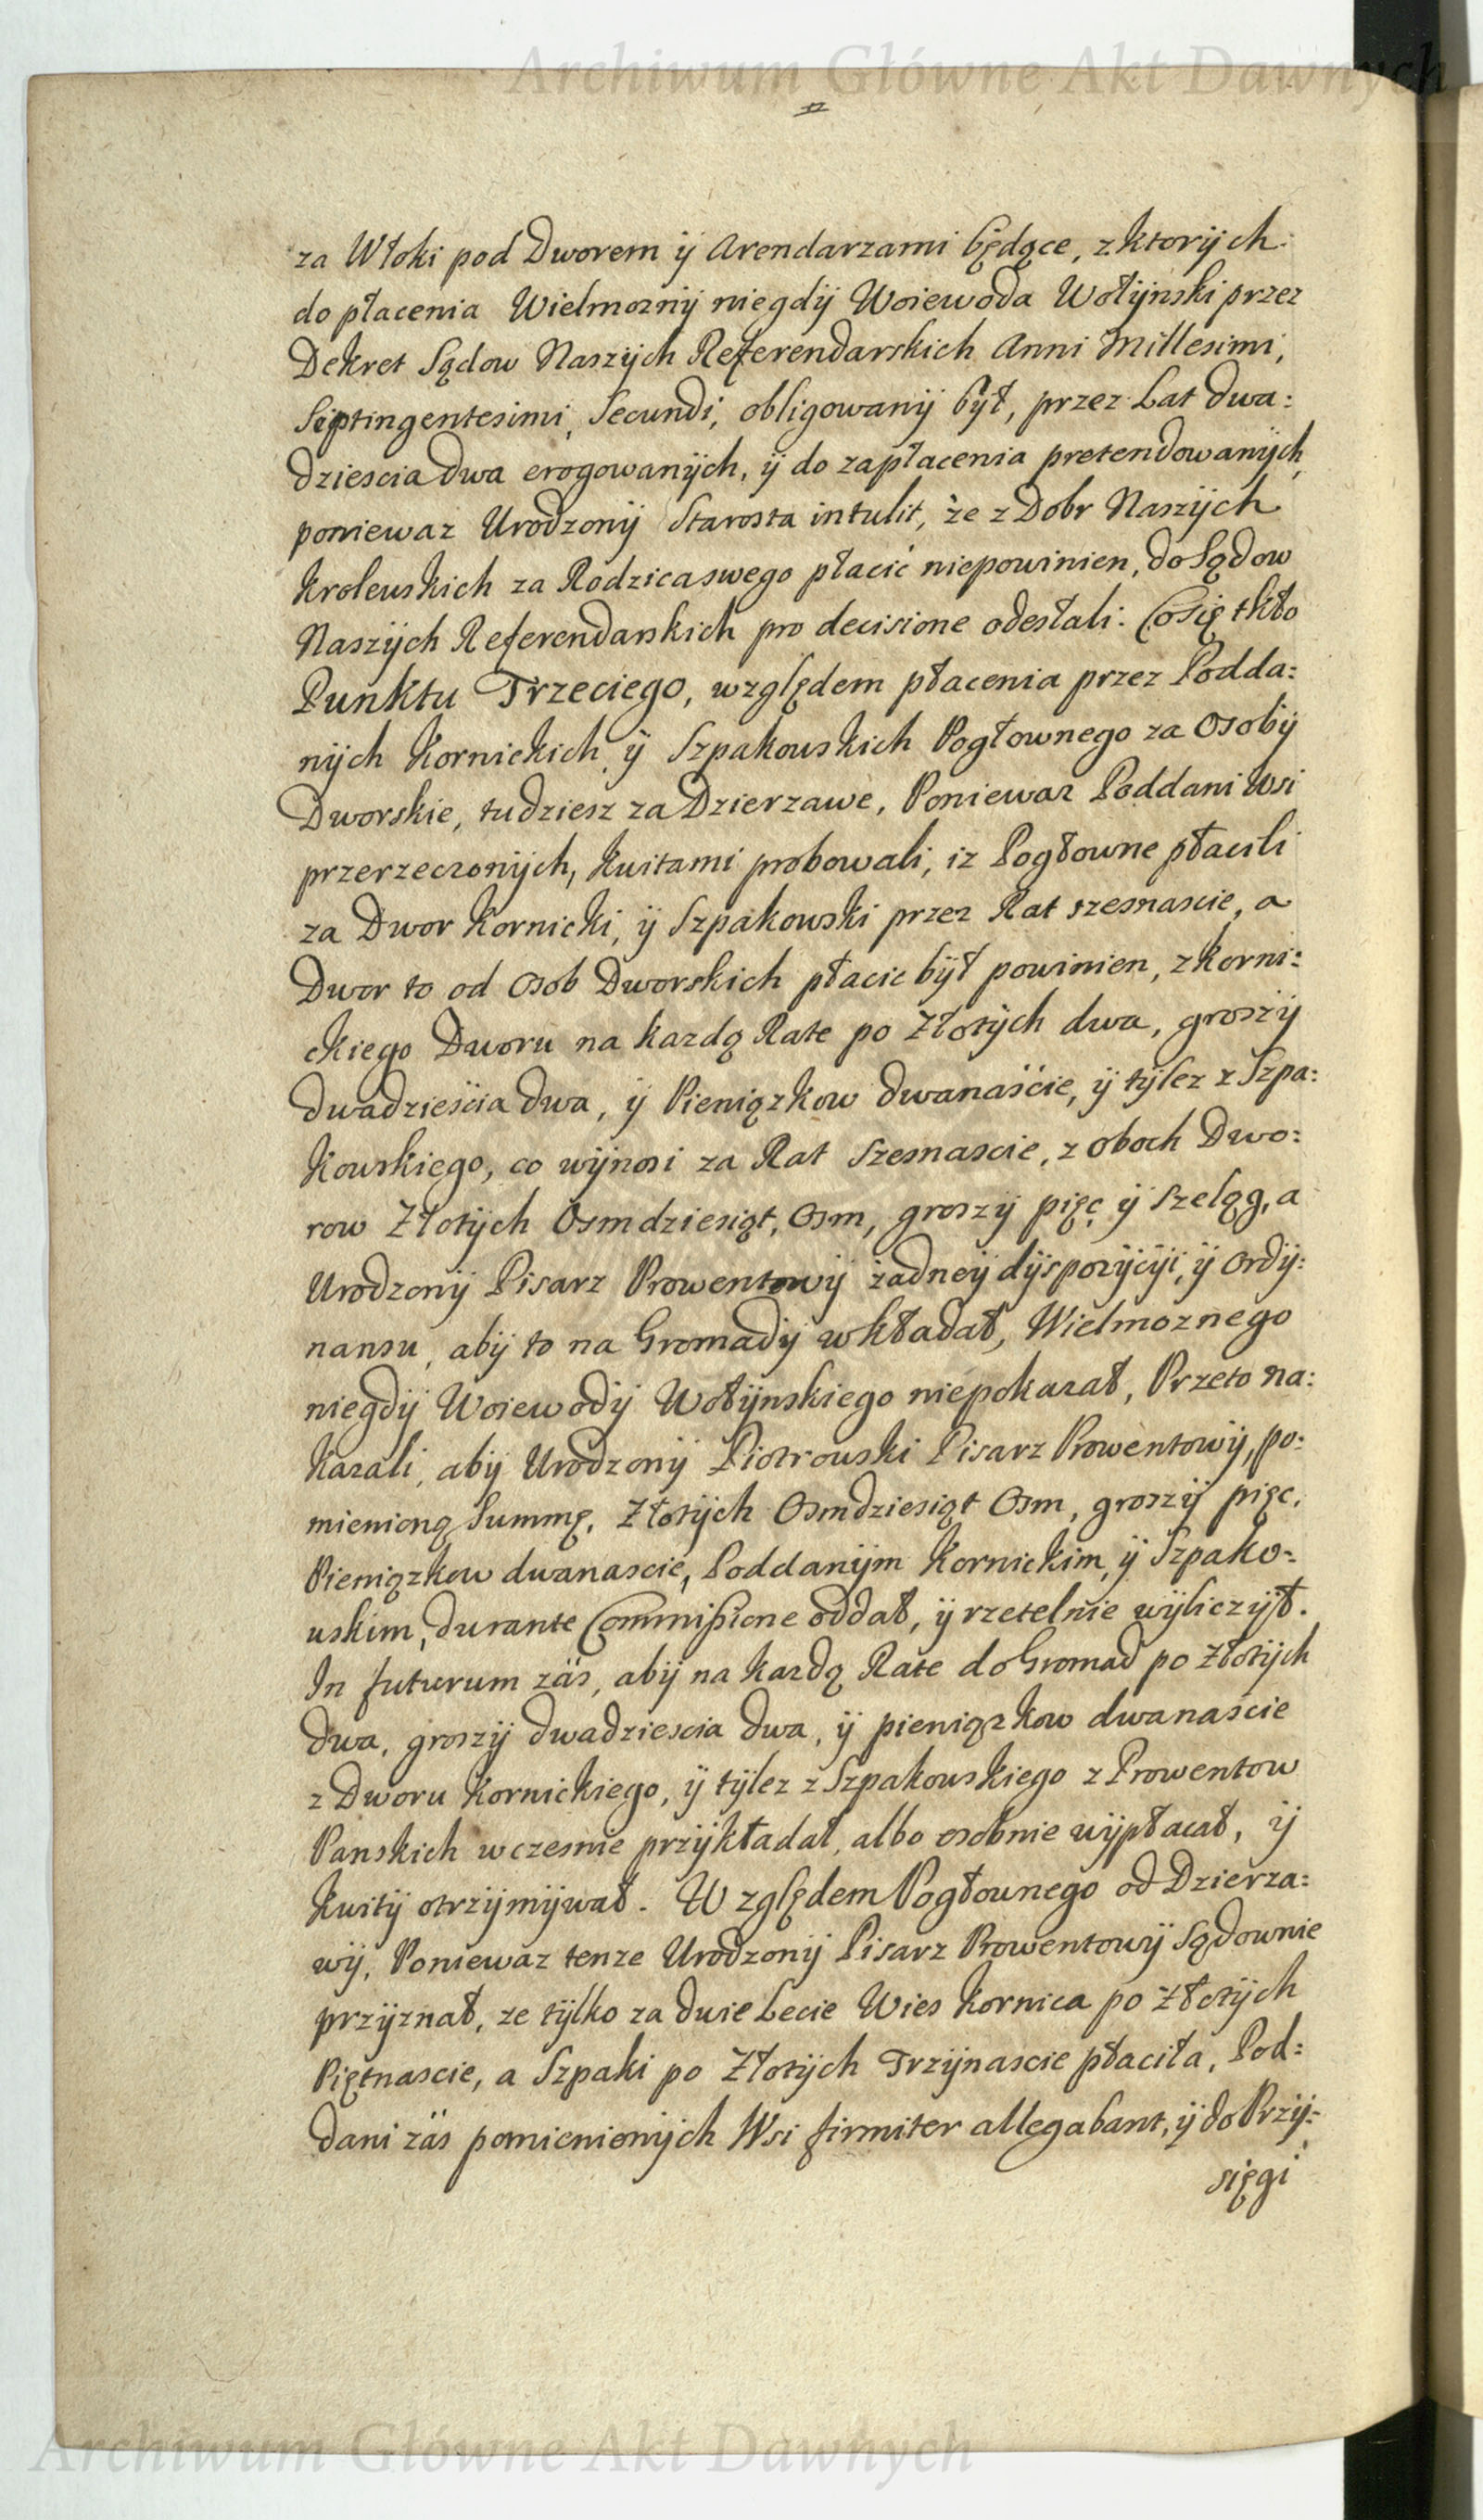 Archiwum Główne Akt Dawnych
za Włoki pod Dworem ÿ Arendarzami będące, z ktorÿch
do płacenia Wielmoznÿ niegdÿ Woiewoda Wołÿnski przez
Dekret Sądow Naszÿch Referendarskich Anni Millesimi,
Septingentesimi, Secundi, obligowanÿ bÿł, przez Lat dwa:
dziescia dwa erogowanÿch, ÿ do zapłacenia pretendowanÿch,
poniewaz Urodzonÿ Starosta intulit, że z Dobr Naszÿch
Krolewskich za Rodzica swego płacić niepowinien, do Sądow
Naszÿch Referendarskich pro decisione odesłali. Co się tkło
Punktu Trzeciego, względem płacenia przez Podda:
nÿch Kornickich ÿ Szpakowskich Pogłownego za Osobÿ
Dworskie, tudziesz za Dzierzawe, Poniewaz Poddani Wsi
przerzeczonÿch, Kwitami probowali, iz Pogłowne płacili
za Dwor Kornicki, ÿ Szpakowski przez Rat szesnascie, a
Dwor to od Osob Dworskich płacic bÿł powinien, z Korni:
ckiego Dworu na kazdą Rate po Złotÿch dwa, groszÿ
dwadzieścia dwa, ÿ Pieniązkow dwanaście, ÿ tÿlez z Szpa:
kowskiego, co wÿnosi za Rat szesnascie, z oboch Dwo:
row Złotÿch Osmdziesiąt, Osm, groszÿ pięc ÿ szeląg, a
Urodzonÿ Pisarz Prowentowÿ żadneÿ dÿspozÿcÿi, ÿ Ordÿ:
nansu, abÿ to na Gromadÿ wkładał, Wielmoznego
niegdÿ Woiewodÿ Wołÿnskiego niepokazał, Przeto na:
kazali, abÿ Urodzonÿ Piotrowski Pisarz Prowentowÿ, po:
mienioną Summę, Złotÿch Osmdziesiąt Osm, groszÿ pięc,
Pieniązkow dwanascie, Poddanÿm Kornickim, ÿ Szpako:
wskim, durante Commißione oddał, ÿ rzetelnie wÿliczÿł.
In futurum zás, abÿ na kazdą Rate do Gromad po Złotÿch
dwa, groszÿ dwadziescia dwa, ÿ pieniązkow dwanaście
z Dworu Kornickiego, ÿ tÿlez z Szpakowskiego z Prowentow
Panskich wczesnie przÿkładał, albo osobnie wÿpłacał, ÿ
Kwitÿ otrzÿmÿwał. Względem Pogłownego od Dzierza:
wÿ, Poniewaz tenze Urodzonÿ Pisarz Prowentowÿ Sądownie
przÿznał, ze tÿlko za dwie Lecie Wies Kornica po Złotÿch
Piętnascie, a Szpaki po Złotÿch Trzÿnascie płaciła, Pod:
dani zás pomienionÿch Wsi firmiter allegabant, ÿ do Przÿ:
sięgi
Archiwum Główne Akt Dawnych